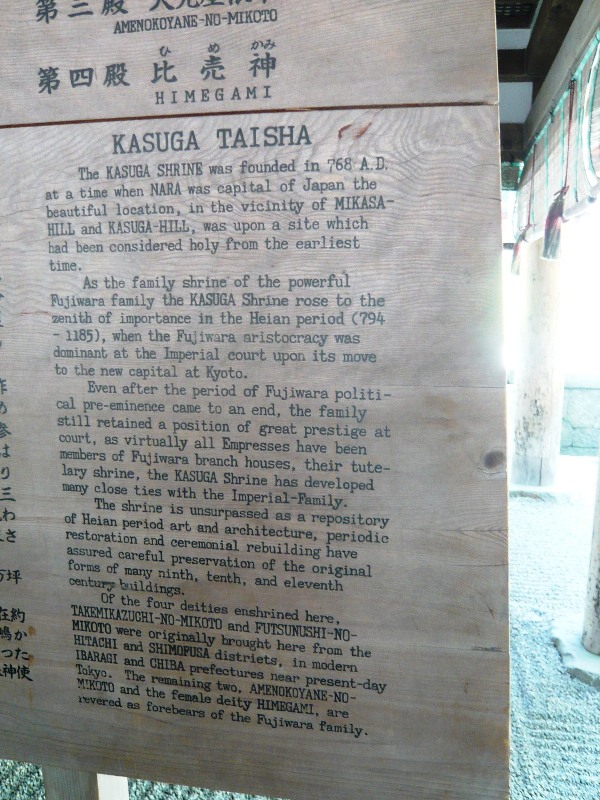 第三殿
AMENOKOYANE-NO-MIKOTO
ひめかみ
第四殿 比売神
HIMEGAMI
KASUGA TAISHA
The KASUGA SHRINE was founded in 768 A.D.
at a time when NARA was capital of Japan the
beautiful location, in the vicinity of MIKASA-
HILL and KASUGA-HILL, was upon a site which
had been considered holy from the earliest
time.
As the family shrine of the powerful
Fujiwara family the KASUGA Shrine rose to the
zenith of importance in the Heian period (794
- 1185), when the Fujiwara aristocracy was
dominant at the Imperial court upon its move
to the new capital at Kyoto.
Even after the period of Fujiwara politi-
cal pre-eminence came to an end, the family
still retained a position of great prestige at
court, as virtually all Empresses have been
members of Fujiwara branch houses, their tute-
lary shrine, the KASUGA Shrine has developed
many close ties with the Imperial-Family.
The shrine is unsurpassed as a repository
of Heian period art and architecture, periodic
restoration and ceremonial rebuilding have
assured careful preservation of the original
forms of many ninth, tenth, and eleventh
century buildings.
Of the four deities enshrined here,
TAKEMIKAZUCHI-NO-MIKOTO and FUTSUNUSHI-NO-
MIKOTO were originally brought here from the
HITACHI and SHIMOFUSA districts, in modern
IBARAGI and CHIBA prefectures near present-day
Tokyo. The remaining two, AMENOKOYANE-NO-
MIKOTO and the female deity HIMEGAMI, are
revered as forebears of the Fujiwara family.